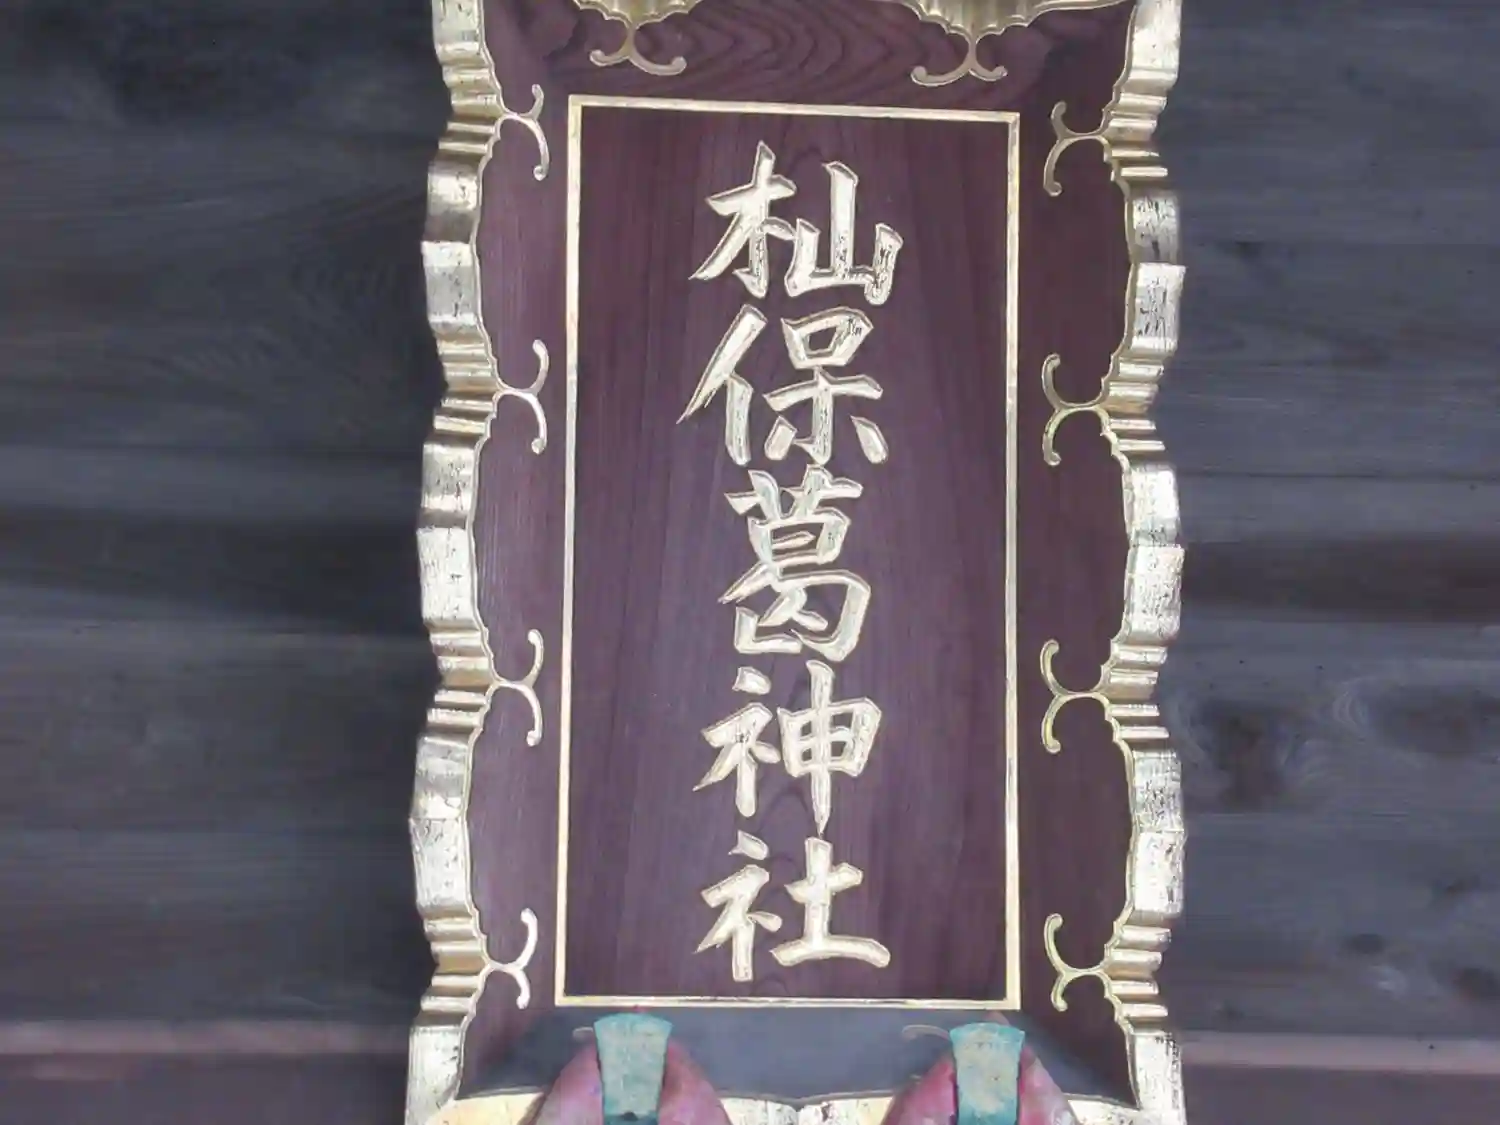 杣保葛神社